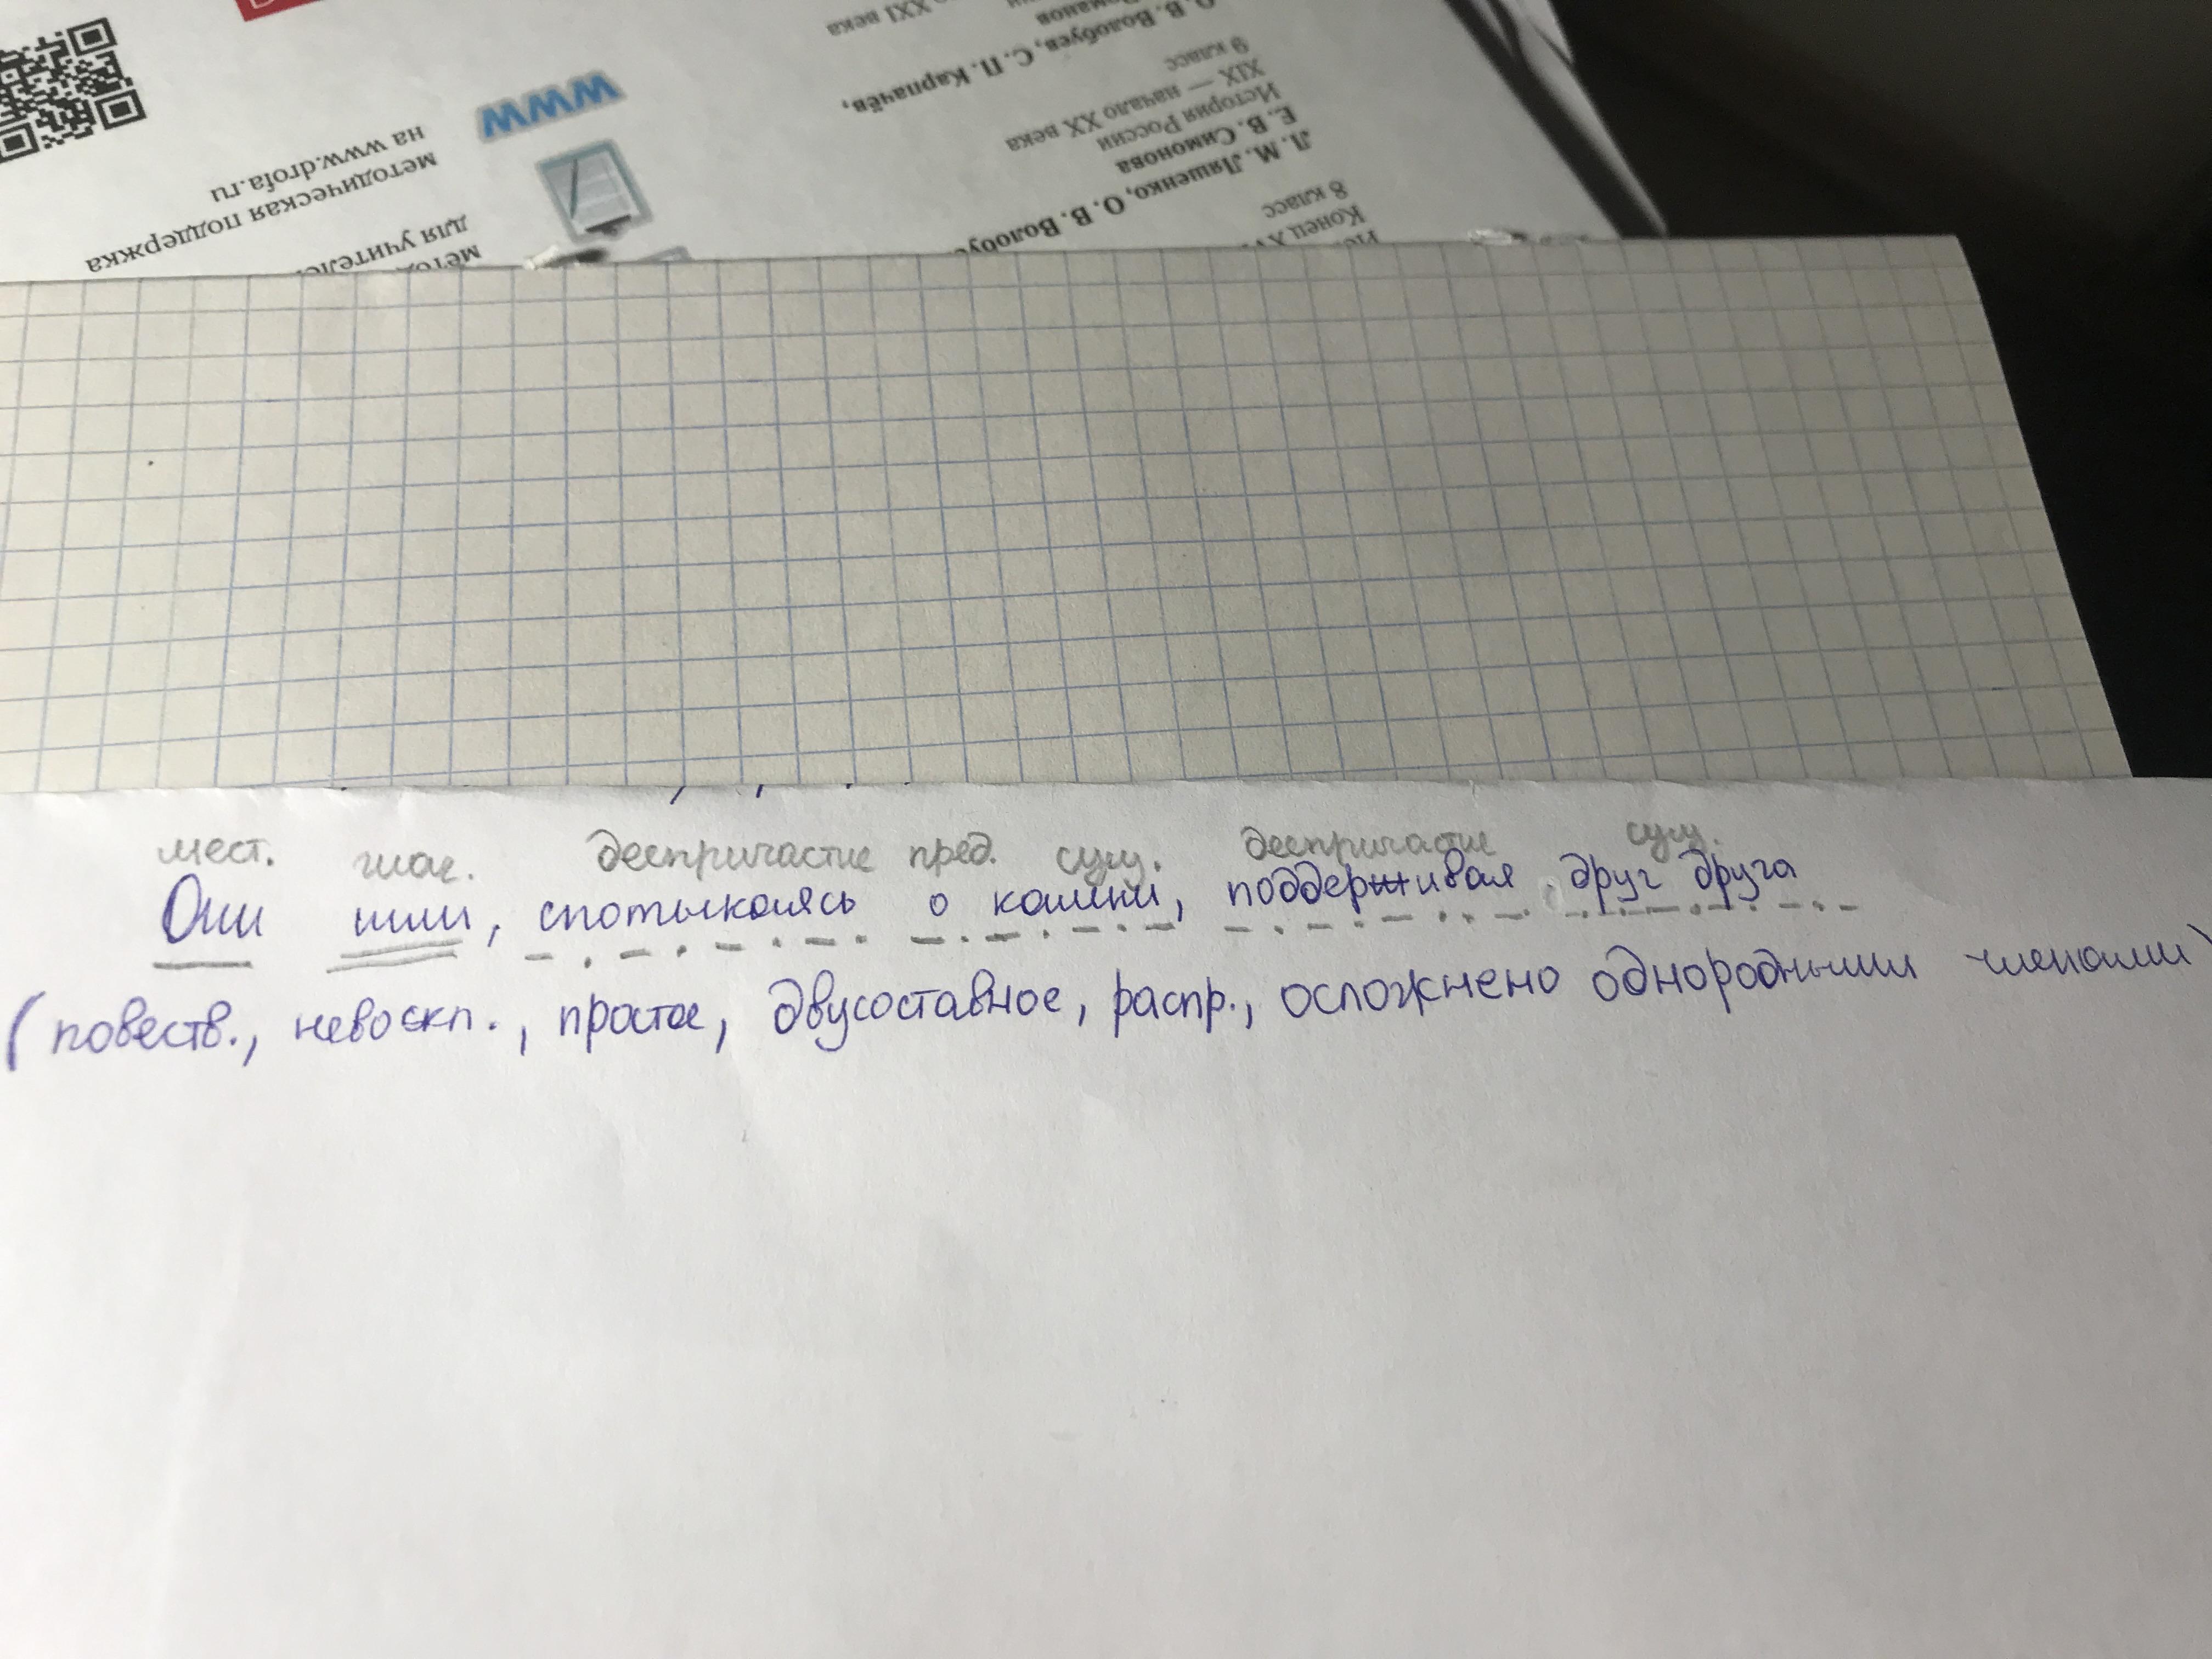 О. В. Волобуев, С. П. Карпачёв,
XXI века
9 класс
XIX — начало XX века
История России
Е. В. Симонова
Л. М. Ляшенко, О. В. Волобуе
8 класс
Конец XV
www
на www.drofa.ru
методическая поддержка
для учителе
мест. глаг. деепричастие пред. сущ. деепричастие сущ.
Они шли, спотыкаясь о камни, поддерживая друг друга
(повеств., невоскл., простое, двусоставное, распр., осложнено однородными членами)